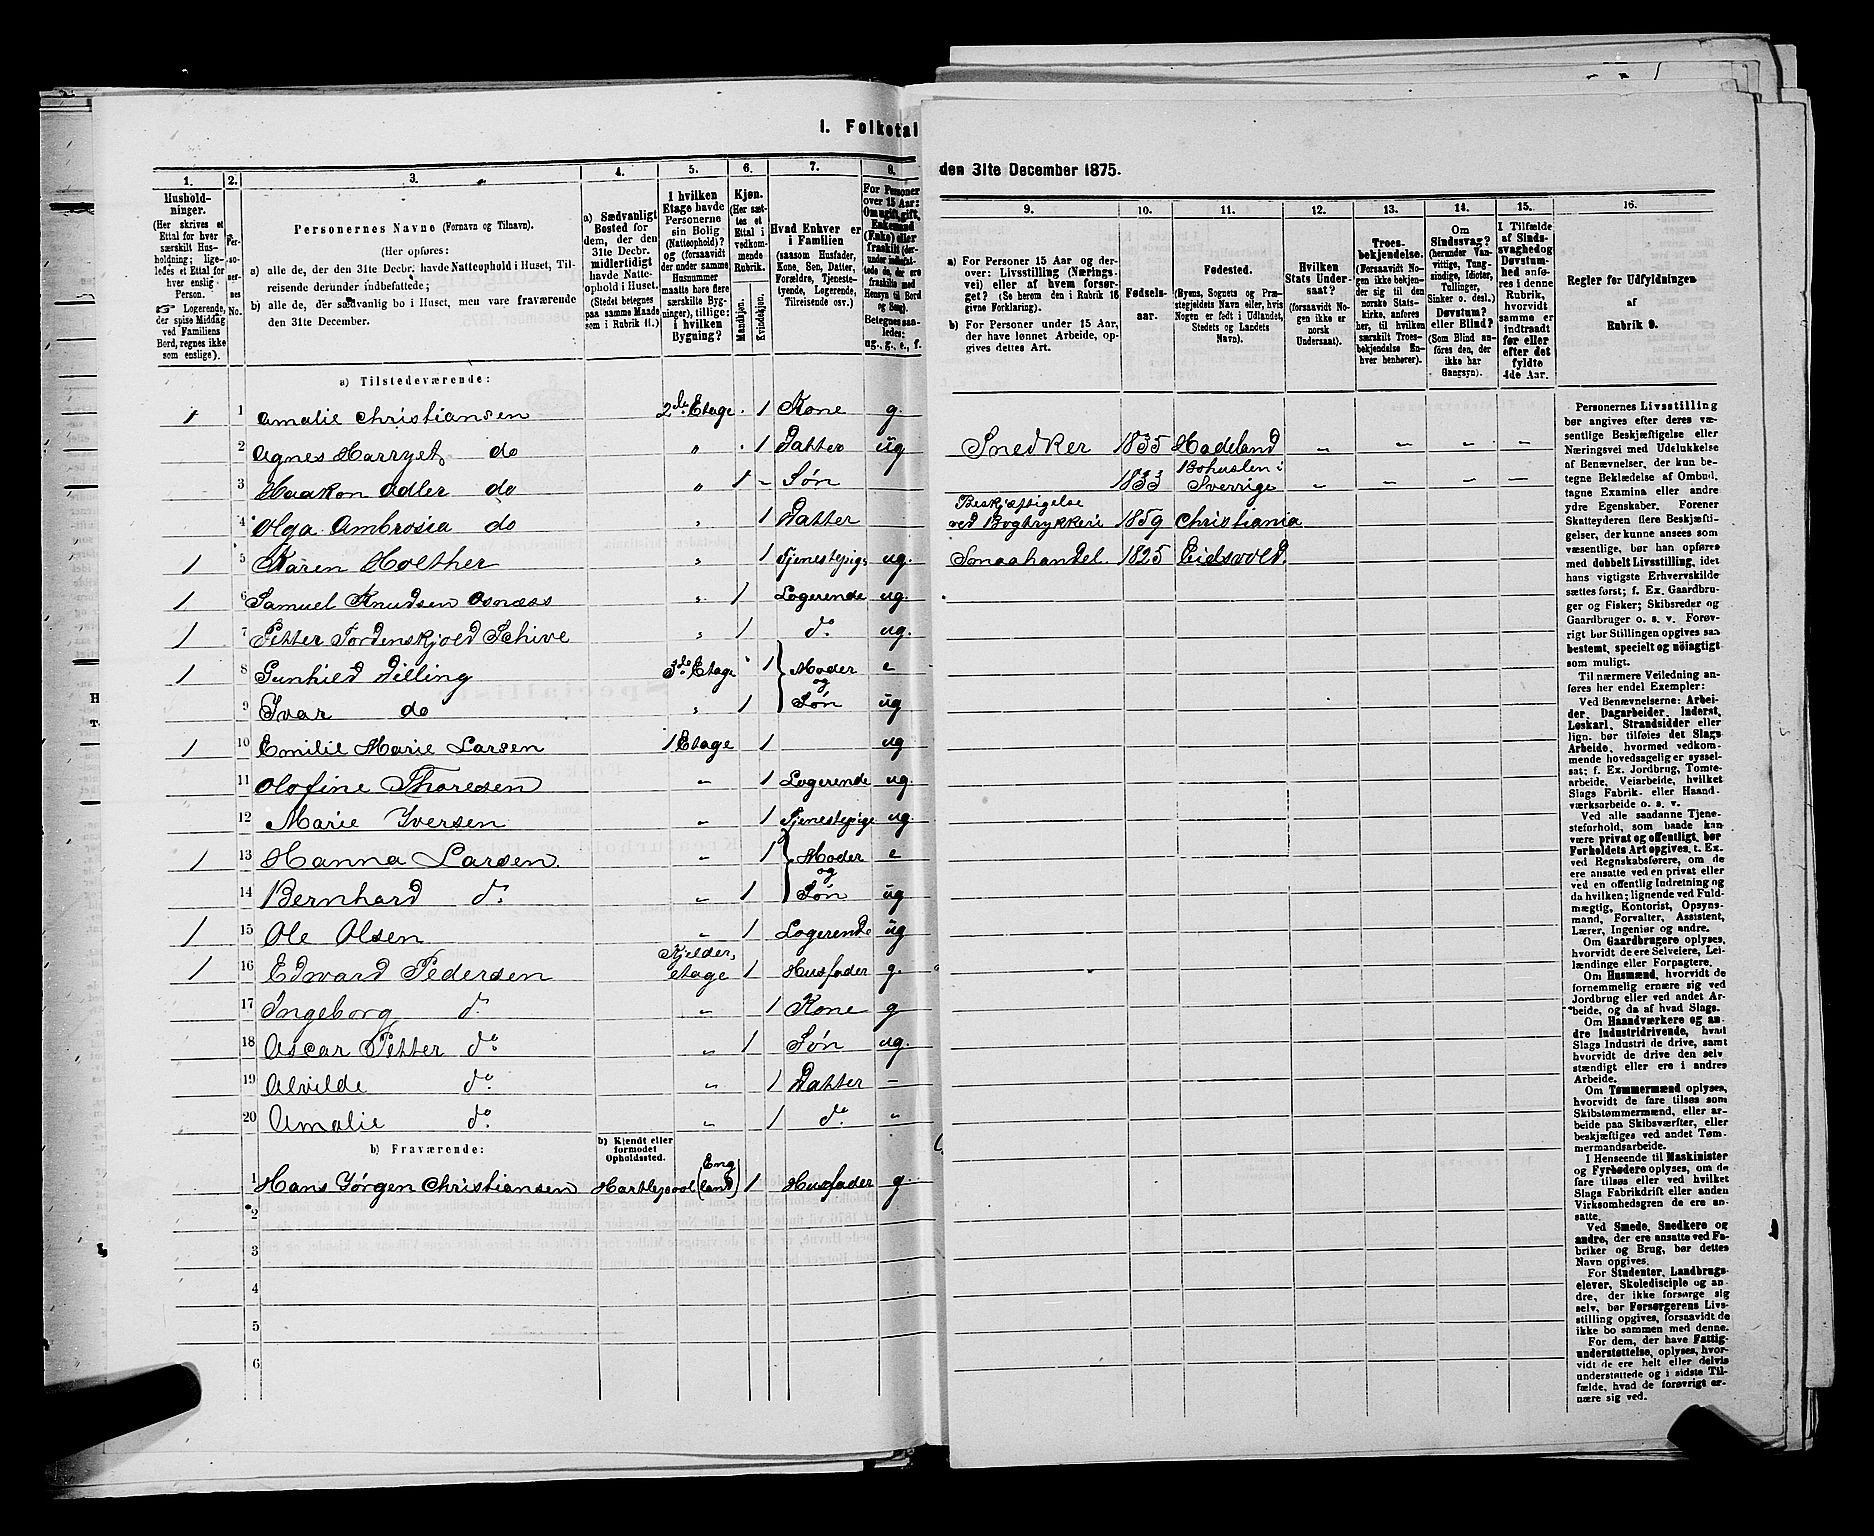 I. Folketal
1. 2. 3. 4. 5. 6. 7. 8.
Hushold-
ninger.
(Her skrives et
Ettal for hver
særskilt Hus-
holdning; lige-
ledes et Ettal for
hver enslig
Person.
☞ Logerende,
der spise Middag
ved Familiens
Bord, regnes ikke
som enslige).
Personernes Navne (Fornavn og Tilnavn).
(Her opføres:
a) alle de, der den 31te Decbr. havde Natteophold i Huset, Til-
reisende derunder indbefattede;
b) alle de, der sædvanlig bo i Huset, men vare fraværende
den 31te December.
a) Sædvanligt
Bosted for
dem, der den
31te Decbr.
midlertidigt
havde Natte-
ophold i Huset.
(Stedet betegnes
paa samme Maade
som i Rubrik 11.)
I hvilken
Etage havde
Personerne
sin Bolig
(Natteophold)?
og (forsaavidt
der under samme
Husnummer
maatte høre flere
særskilte Byg-
ninger), tillige:
i hvilken
Bygning?
Kjøn.
(Her sæt-
tes et
Ettal i
vedkom-
mende
Rubrik.
Mandkjøn.
Kvindekjøn.
Hvad Enhver er
i Familien
(saasom Husfader,
Kone, Søn, Datter,
Forældre, Tjeneste-
tyende, Logerende,
Tilreisende osv.)
For Personer
over 15 Aar:
Om ugift, gift,
Enkemand
(Enke) eller
fraskilt
ug., g., e., f.
a) Tilstedeværende:
1 1 Amalie Christiansen 2de Etage 1 Kone g.
2 Agnes Harryet do " 1 Datter ug
3 Haakon Adler do " 1 Søn
4 Olga Ambrosia do " 1 Datter
1 5 Karen Holther " 1 Tjenestepige ug.
1 6 Samuel Knudsen Osnæss " 1 Logerende ug.
1 7 Petter Tordenskjold Schive " 1 do ug.
1 8 Gunhild Dilling 3de Etage 1 Moder e
og
9 Ivar do " 1 Søn ug
1 10 Emilie Marie Larsen 1 Etage 1 ug
11 Olofine Thoresen " 1 Logerende ug.
12 Marie Iversen " 1 Tjenestepige ug.
1 13 Hanna Larsen. " 1 Moder e
og
14 Bernhard do " 1 Søn ug
1 15 Ole Olsen " 1 Logerende ug
1 16 Edward Pedersen Kjelder, etage 1 Husfader g.
17 Ingeborg do " 1 Kone g
18 Oscar Petter do " 1 Søn ug.
19 Alvilde do " 1 Datter –
20 Amalie do " 1 do "
b) Fraværende:
b) Kjendt eller
formodet
Opholdssted.
1 Hans Jørgen Christiansen Hartlepool (England) 1 Husfader g.
2
3
4
5
6
den 31te December 1875.
9. 10. 11. 12. 13. 14. 15. 16.
a) For Personer 15 Aar og der-
over: Livsstilling (Nærings-
vei) eller af hvem forsør-
get? (Se herom den i Rubrik 16
givne Forklaring).
b) For Personer under 15 Aar,
der have lønnet Arbeide, op-
gives dettes Art.
Fødsels-
aar.
Fødested.
(Byens, Sognets og Præ-
stegjeldets Navn eller, hvis
Nogen er født i Udlandet,
Stedets og Landets
Navn).
Hvilken
Stats Under-
saat?
(forsaavidt No-
gen ikke er
norsk
Undersaat).
Troes-
bekjendelse.
(Forsaavidt No-
gen ikke bekjen-
der sig til den
norske Stats-
kirke, anføres
her, til hvilken
særskilt Troes-
bekjendelse En-
hver henhører).
Om
Sindssvag?
(herunder Van-
vittige, Tung-
sindige, Idioter,
Tullinger,
Sinker o. desl.)
Døvstum?
eller Blind?
(Som Blind an-
føres den, der
ikke har
Gangsyn).
I Tilfælde
af Sinds-
svaghed og
Døvstum-
hed anfø-
res i denne
Rubrik,
hvorvidt
samme er
indtraadt
før eller
efter det
fyldte
4de Aar.
Regler for Udfyldningen
af
Rubrik 9.
Snedker 1835 Hadeland " – – –
1833 Bohuslen i Sverrige – – – –
Beskjæftigelse
ved Bogtrykkeri 1859 Christiania
Smaahandel. 1825 Eidsvold.
Personernes Livsstilling
bør angives efter deres væ-
sentlige Beskjæftigelse eller
Næringsvei med Udelukkelse
af Benævnelser, der kun be-
tegne Beklædelse af Ombud,
tagne Examina eller andre
ydre Egenskaber. Forener
Skatteyderen flere Beskjæfti-
gelser, der kunne ansees som
væsentlige, bør han opføres
med dobbelt Livsstilling, idet
hans vigtigste Erhvervskilde
sættes først; f. Ex. Gaardbru-
ger og Fisker; Skibsreder og
Gaardbruger o. s. v. Forøv-
rigt bør Stillingen opgives saa
bestemt, specielt og nöiagtigt
som muligt.
Til nærmere Veiledning an-
føres her endel Exempler:
Ved Benævnelserne: Arbei-
der, Dagarbeider, Inderst,
Løskarl, Strandsidder eller
lign. bør tilføies det Slags
Arbeide, hvormed vedkom-
mende hovedsagelig er syssel-
sat; f. Ex. Jordbrug, Tomte-
arbeide, Veiarbeide, hvilket
Slags Fabrik- eller Haand-
værksarbeide o. s. v.
Ved alle saadanne Tjene-
steforhold, som baade kan
være privat og offentligt, bør
Forholdets Art opgives, t. Ex.
ved Regnskabsførere, om de
ere ansatte ved en privat eller
ved en offentlig Indretning og
da hvilken; lignende ved Fuld-
mægtig, Kontorist, Opsyns-
mand, Forvalter, Assistent,
Lærer, Ingeniør og andre.
Om Gaardbrugere oplyses,
hvorvidt de ere Selveiere, Lei-
lændinge eller Forpagtere.
Om Husmænd, hvorvidt de
fornemmelig ernære sig ved
Jordbrug eller ved andet Ar-
beide, og da af hvad Slags.
Om Haandværkere og an-
dre Industridrivende, hvad
Slags Industri de drive, samt
hvorvidt de drive den selv-
stændigt eller ere i andres
Arbeide.
Om Tømmermænd oplyses,
hvorvidt de fare tilsøs som
Skibstømmermænd, eller ar-
beide paa Skibsværfter, eller
beskjæftiges ved andet Tøm-
mermandsarbeide.
I Henseende til Maskinister
og Fyrbødere oplyses, om de
fare tilsøs eller ved hvilket
Slags Fabrikdrift eller anden
Virksomhedsgren de ere an-
satte.
Ved Smede, Snedkere og
andre, der ere ansatte ved Fa-
briker og Brug, bør dettes
Navn opgives.
For Studenter, Landbrugs-
elever, Skoledisciple og an-
dre, der ikke forsørge sig
selv, bør Forsørgerens Livs-
stilling opgives, forsaavidt de
ikke bo sammen med denne.
For dem, der have Fattig-
understøttelse, oplyses, hvor-
vidt de ere helt eller delvis
understøttede og i sidste Til-
fælde, hvad de forøvrigt er-
nære sig ved.